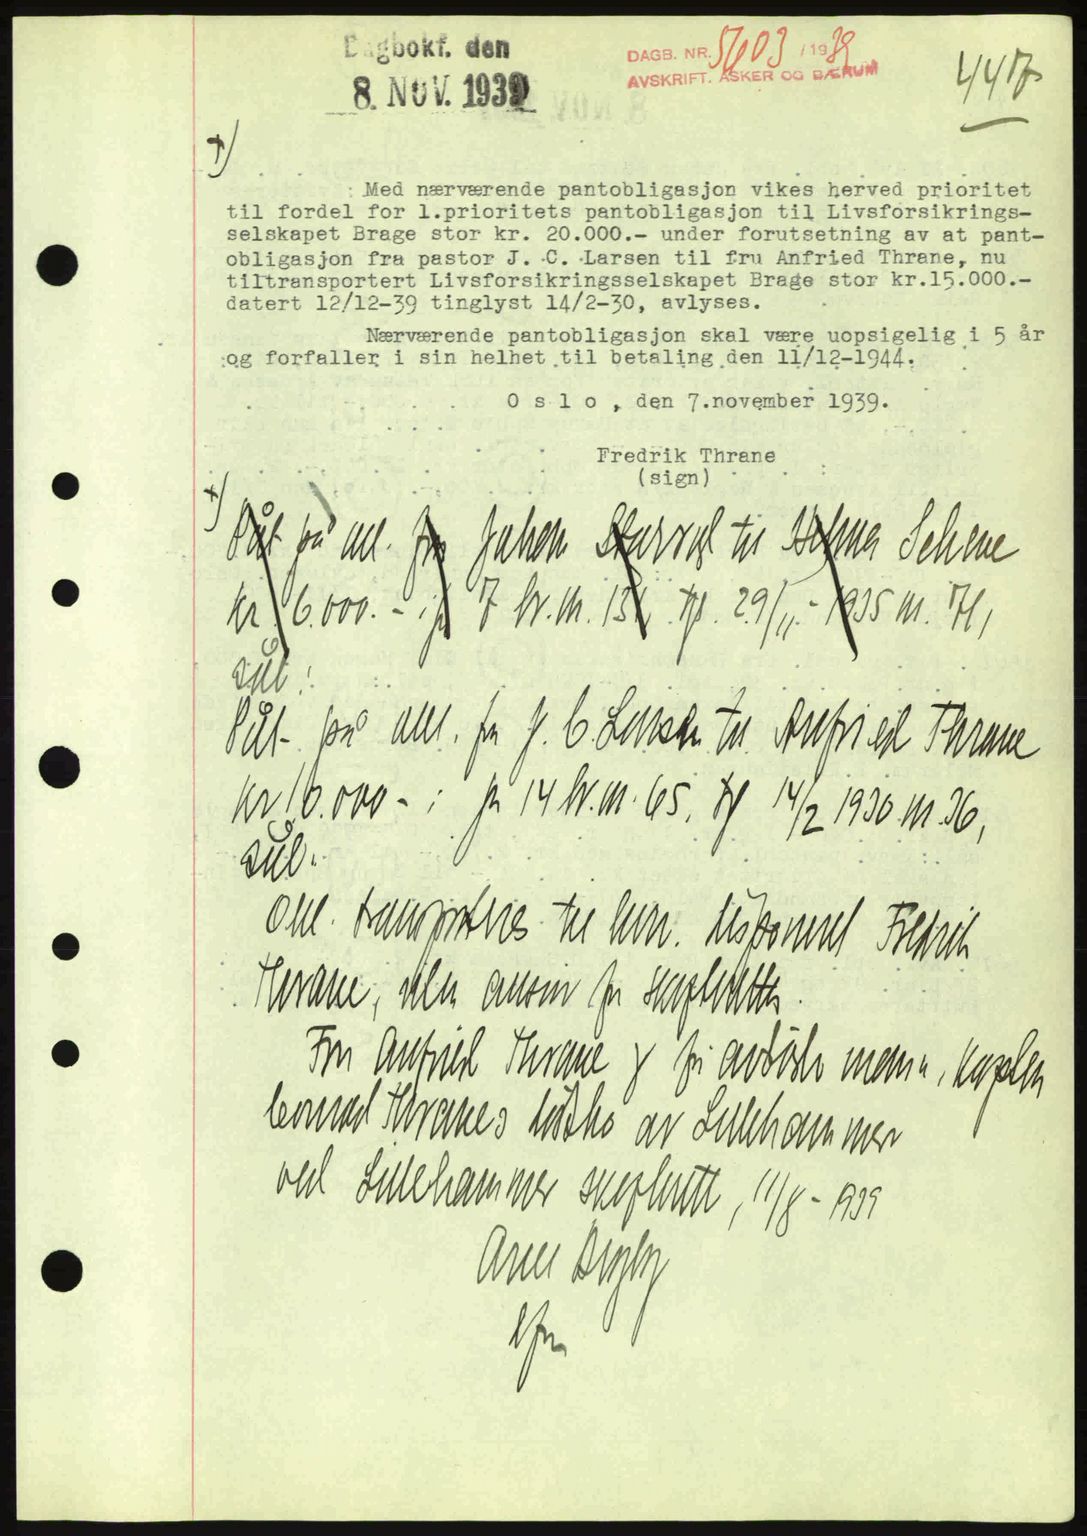 Dagbokf. den
8. NOV. 1939
DAGB. NR. 5603 / 1939
AVSKRIFT. ASKER OG BÆRUM
447
+)
Med nærværende pantobligasjon vikes herved prioritet
til fordel for 1.prioritets pantobligasjon til Livsforsikrings-
selskapet Brage stor kr. 20.000.- under forutsetning av at pant-
obligasjon fra pastor J. C. Larsen til fru Anfried Thrane, nu
tiltransportert Livsforsikringsselskapet Brage stor kr.15.000.-
datert 12/12-39 tinglyst 14/2-30, avlyses.
Nærværende pantobligasjon skal være uopsigelig i 5 år
og forfaller i sin helhet til betaling den 11/12-1944.
O s l o , den 7.november 1939.
Fredrik Thrane
(sign)
+)
Påt på obl. fra Johan til Schene
kr. 6.000.- 29/11-1935
sål:
Påt. på obl. fra J. C. Larsen til Anfried Thrane
kr 10.000- : 14 65, tgl 14/2 1930 36,
sål:
Obl. transporteres til herr. disponent Fredrik
Thrane, uten ansvar for skifteretten.
Fru Anfried Thrane og før avdøde mann, kaptein
Conrad Thranes dødsbo av Lillehammer
ved Lillehammer skifterett, 11/8-1939